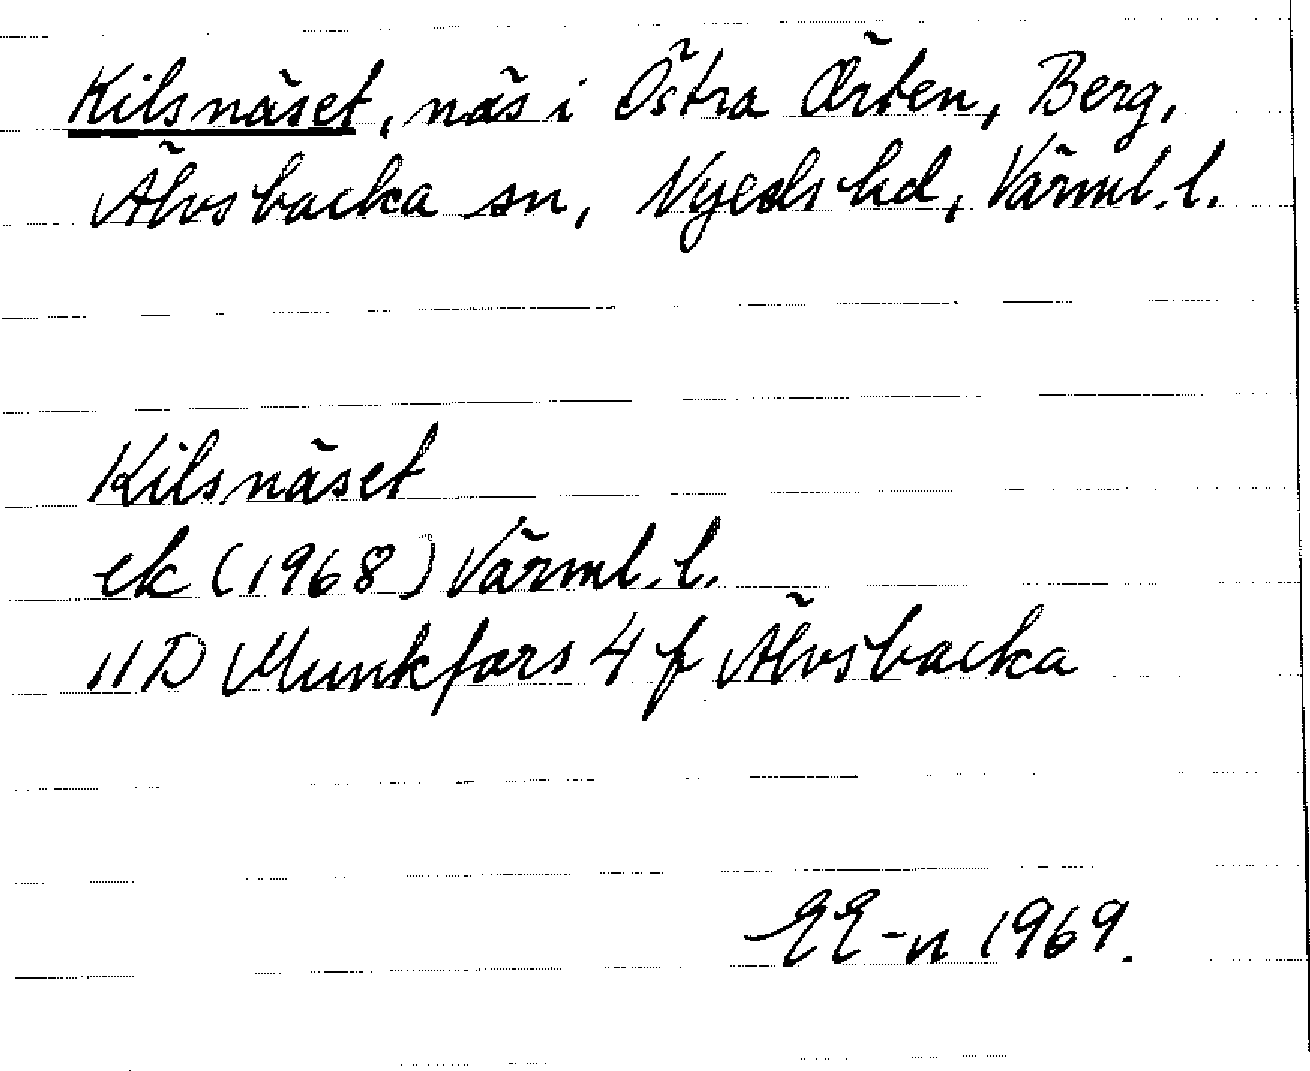 Kilsnäset, näs i Östra Örten, Berg,
Älvsbacka sn, Nyeds hd, Värml. l.
Kilsnäset
ek (1968) Värml. l.
11D Munkfors 4 f Älvsbacka
EE-n 1969.